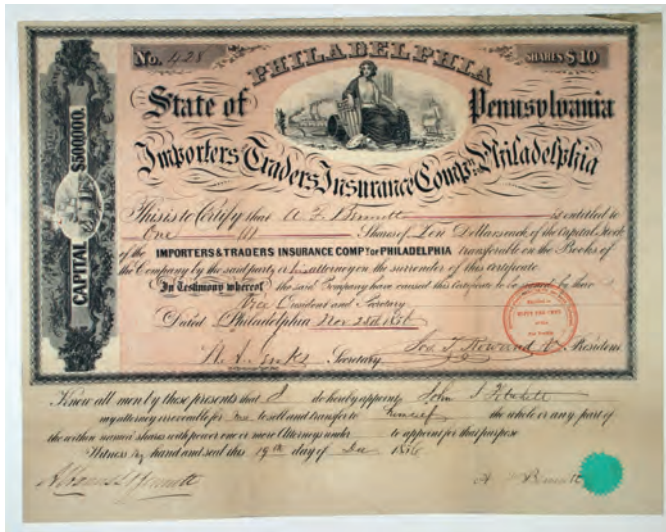 No. 428
PHILADELPHIA
SHARES $10
State of Pennsylvania
Importers & Traders Insurance Compy. Philadelphia
CAPITAL $500000.
This is to Certify that A. F. Bennett is entitled to
One Shares of Ten Dollars each of the Capital Stock
of the IMPORTERS & TRADERS INSURANCE COMPY OF PHILADELPHIA transferable on the Books of
the Company by the said party or his attorney on the surrender of this certificate
In Testimony whereof the said Company have caused this Certificate to be signed by their
Vice President and Secretary
Dated Philadelphia Nov 1856
Secretary Jos. T. Rowand V. President
Know all men by these presents that I do hereby appoint John S.
my attorney irrevocable for me to sell and transfer to himself the whole or any part of
the within named shares with power one or more Attorneys under to appoint for that purpose
Witness my hand and seal this 19th day of Dec 1856
Bennett
A Bennett